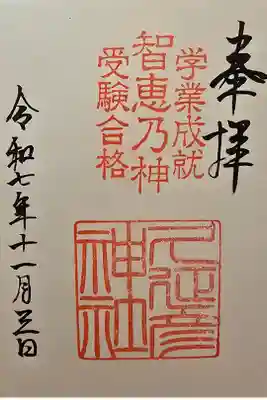 奉拝
学業成就
智恵乃神
受験合格
久延彦
神社
令和七年十一月三日